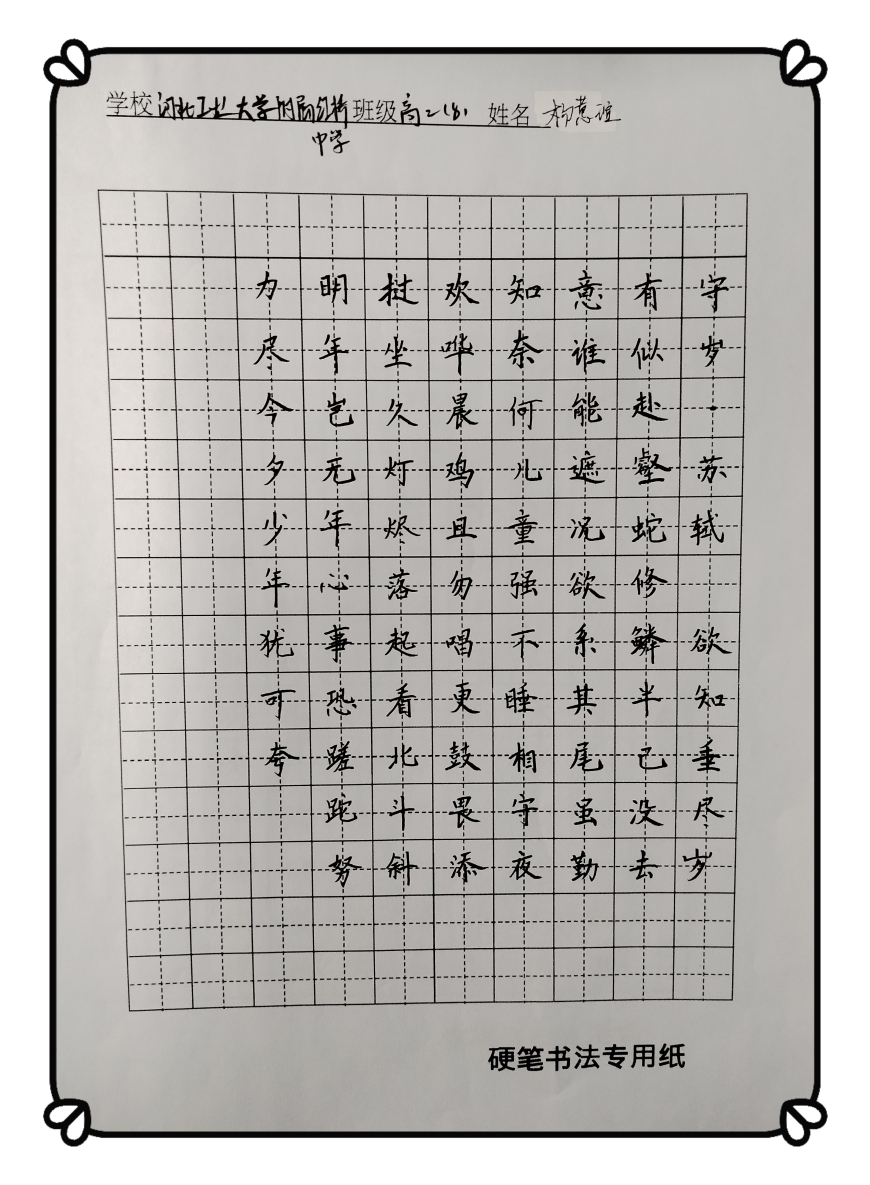 学校河北工业大学附属红桥班级高二(8)姓名
中学
守岁·苏轼 欲知垂尽岁
有似赴壑蛇修鳞半已没去
意谁能遮况欲系其尾虽勤
知奈何儿童强不睡相守夜
欢哗晨鸡且勿唱更鼓畏添
挝坐久灯烬落起看北斗斜
明年岂无年心事恐蹉跎努
力尽今夕少年犹可夸
硬笔书法专用纸